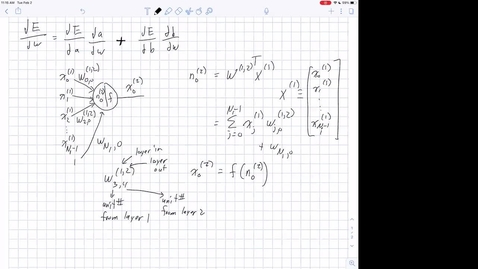 11:16 AM Tue Feb 2
dE/dw = dE/da da/dw + dE/db db/dw
x_0^(1) w_{0,0}^(1,2)
x_1^(1)
x_2^(1) w_{2,0}^(1,2)
⋮
x_{N_1-1}^(1)
1 w_{N_1,0}
n_0^(2) f x_0^(2)
n_0^(2) = W^(1,2)T X^(1)
X^(1) ≡ [x_0^(1) x_1^(1) ⋮ x_{N_1-1}^(1) 1]
= Σ_{j=0}^{N_1-1} x_j^(1) w_{j,0}^(1,2)
+ w_{N_1,0}
layer in
layer out
w_{3,4}^(1,2)
unit #
from layer 1
unit #
from layer 2
x_0^(2) = f(n_0^(2))